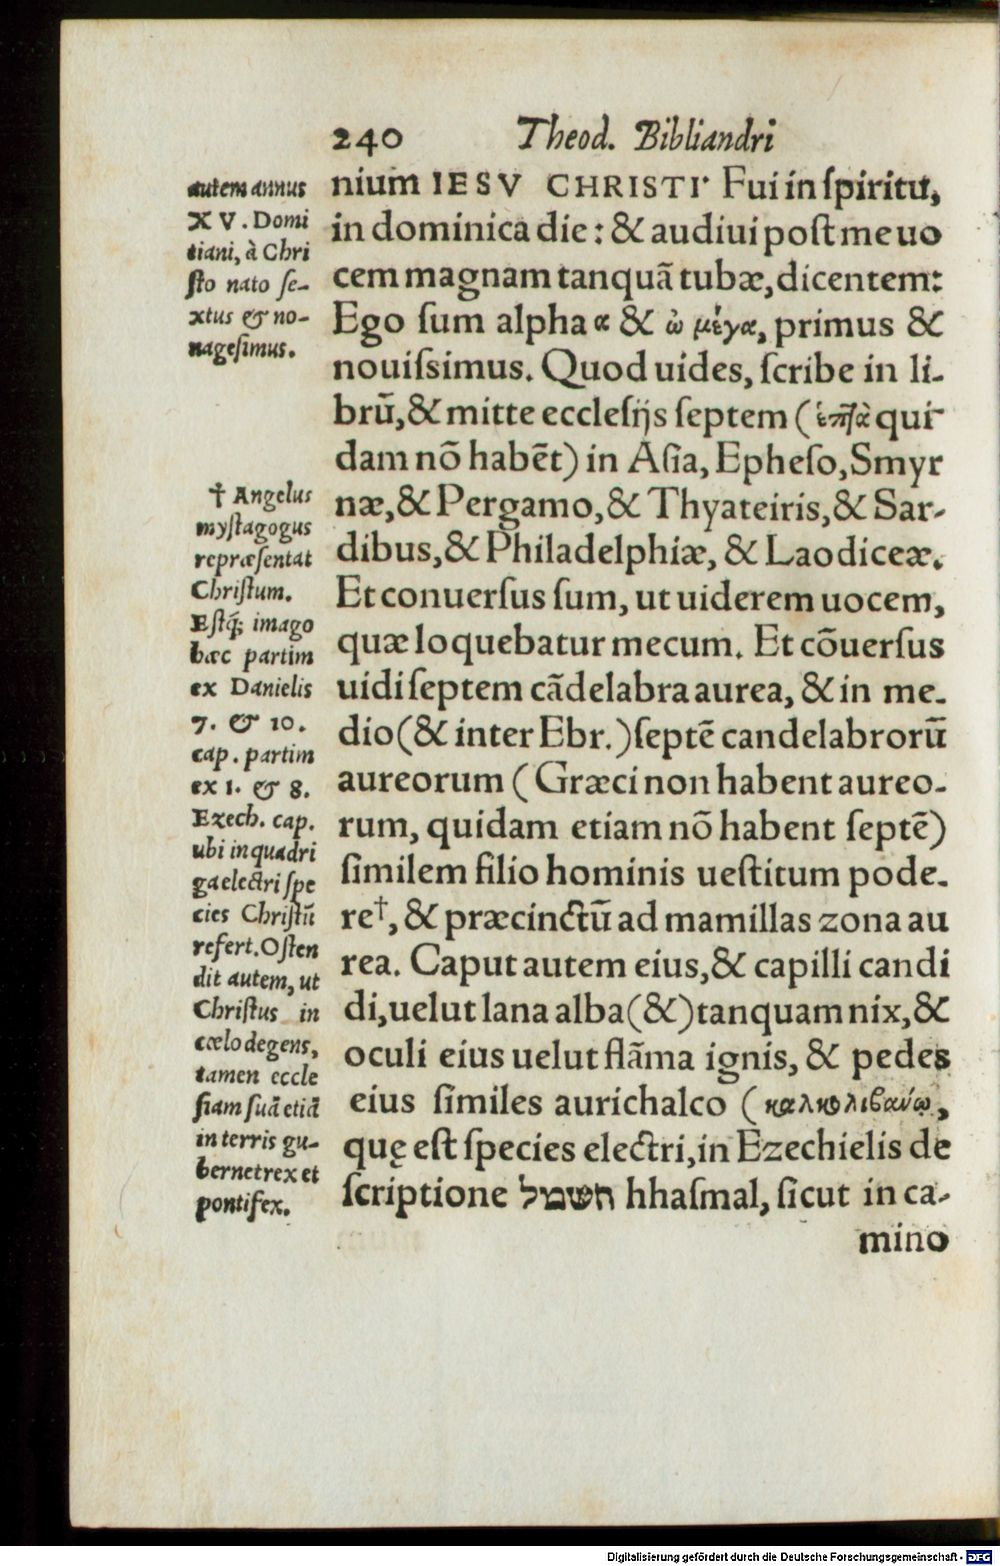 240 Theod. Bibliandri
autem annus
XV. Domi
tiani, à Chri
ſto nato ſe-
xtus & no-
nageſimus.
† Angelus
myſtagogus
repræſentat
Chriſtum.
Eſtq́; imago
hæc partim
ex Danielis
7. & 10.
cap. partim
ex 1. & 8.
Ezech. cap.
ubi in quadri
ga electri ſpe
cies Chriſtũ
refert. Oſten
dit autem, ut
Chriſtus in
cœlo degens,
tamen eccle
ſiam ſuã etiã
in terris gu-
bernet rex et
pontifex.
nium IESV CHRISTI. Fui in ſpiritu,
in dominica die: & audiui poſt me uo
cem magnam tanquã tubæ, dicentem:
Ego ſum alpha α & ὠ μέγα, primus &
nouiſsimus. Quod uides, ſcribe in li-
brũ, & mitte eccleſijs ſeptem (ἑπτὰ qui
dam nõ habẽt) in Aſia, Epheſo, Smyr
næ, & Pergamo, & Thyateiris, & Sar-
dibus, & Philadelphiæ, & Laodiceæ.
Et conuerſus ſum, ut uiderem uocem,
quæ loquebatur mecum. Et cõuerſus
uidi ſeptem cãdelabra aurea, & in me-
dio (& inter Ebr.) ſeptẽ candelabrorũ
aureorum (Græci non habent aureo-
rum, quidam etiam nõ habent ſeptẽ)
ſimilem filio hominis ueſtitum pode-
re†, & præcinctũ ad mamillas zona au
rea. Caput autem eius, & capilli candi
di, uelut lana alba (&) tanquam nix, &
oculi eius uelut flãma ignis, & pedes
eius ſimiles aurichalco (καλκολιβανύω,
quę eſt ſpecies electri, in Ezechielis de
ſcriptione חשמל hhaſmal, ſicut in ca-
mino
Digitalisierung gefördert durch die Deutsche Forschungsgemeinschaft - DFG